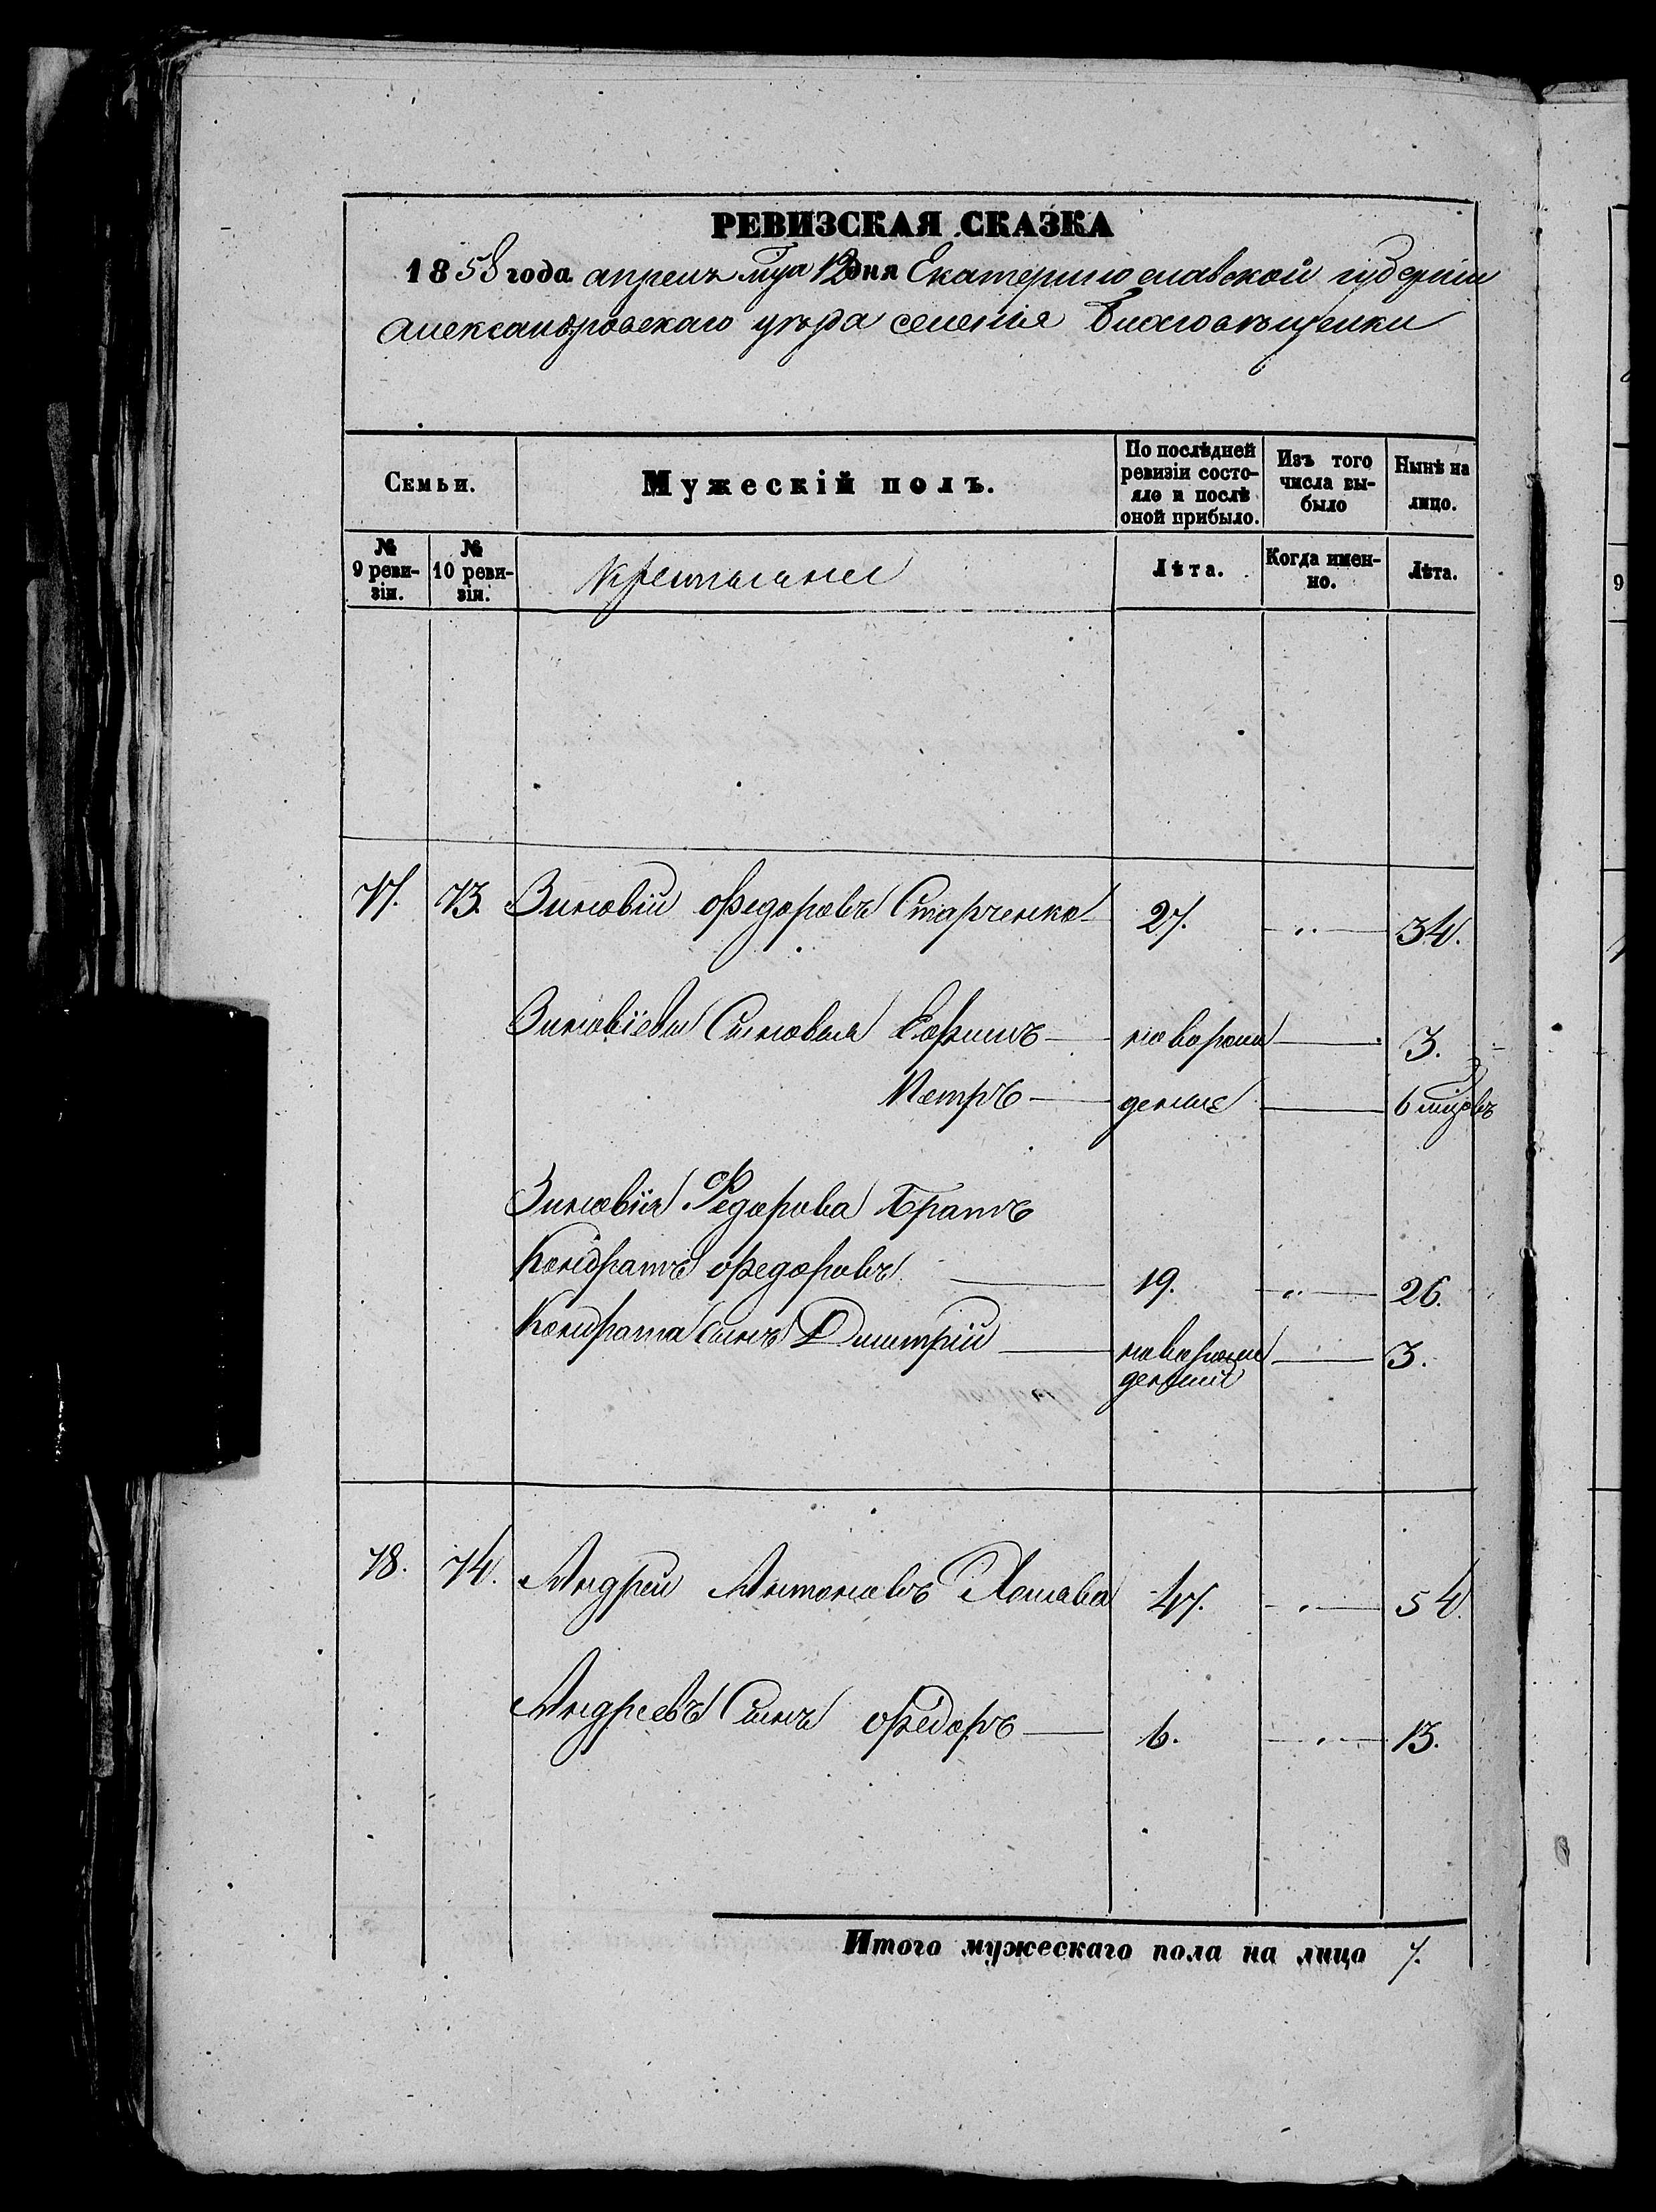 РЕВИЗСКАЯ СКАЗКА
1858 года апреля мца 12 дня Екатеринославской губерніи
Александровскаго уѣзда селенія Благовѣщенки
Семьи.
Мужескій полъ.
По послѣдней ревизіи состояло и послѣ оной прибыло.
Изъ того числа выбыло
Нынѣ на лицо.
№ 9 ревизіи.
№ 10 ревизіи.
Крестьяне
Лѣта.
Когда именно.
Лѣта.
77. 73. Зиновій Федоровъ Старченко 27. " 34.
Зиновіевы Сыновья Ефимъ новорож 3.
Петръ денные 6 мцовъ
Зиновія Федорова Братъ
Кондратъ Федоровъ 19. " 26.
Кондрата Сынъ Дмитрій новорож 3.
денный
78. 74. Андрей Антоновъ 47. " 54.
Андреевъ Сынъ Федоръ 6. " 13.
Итого мужескаго пола на лицо 7.
9